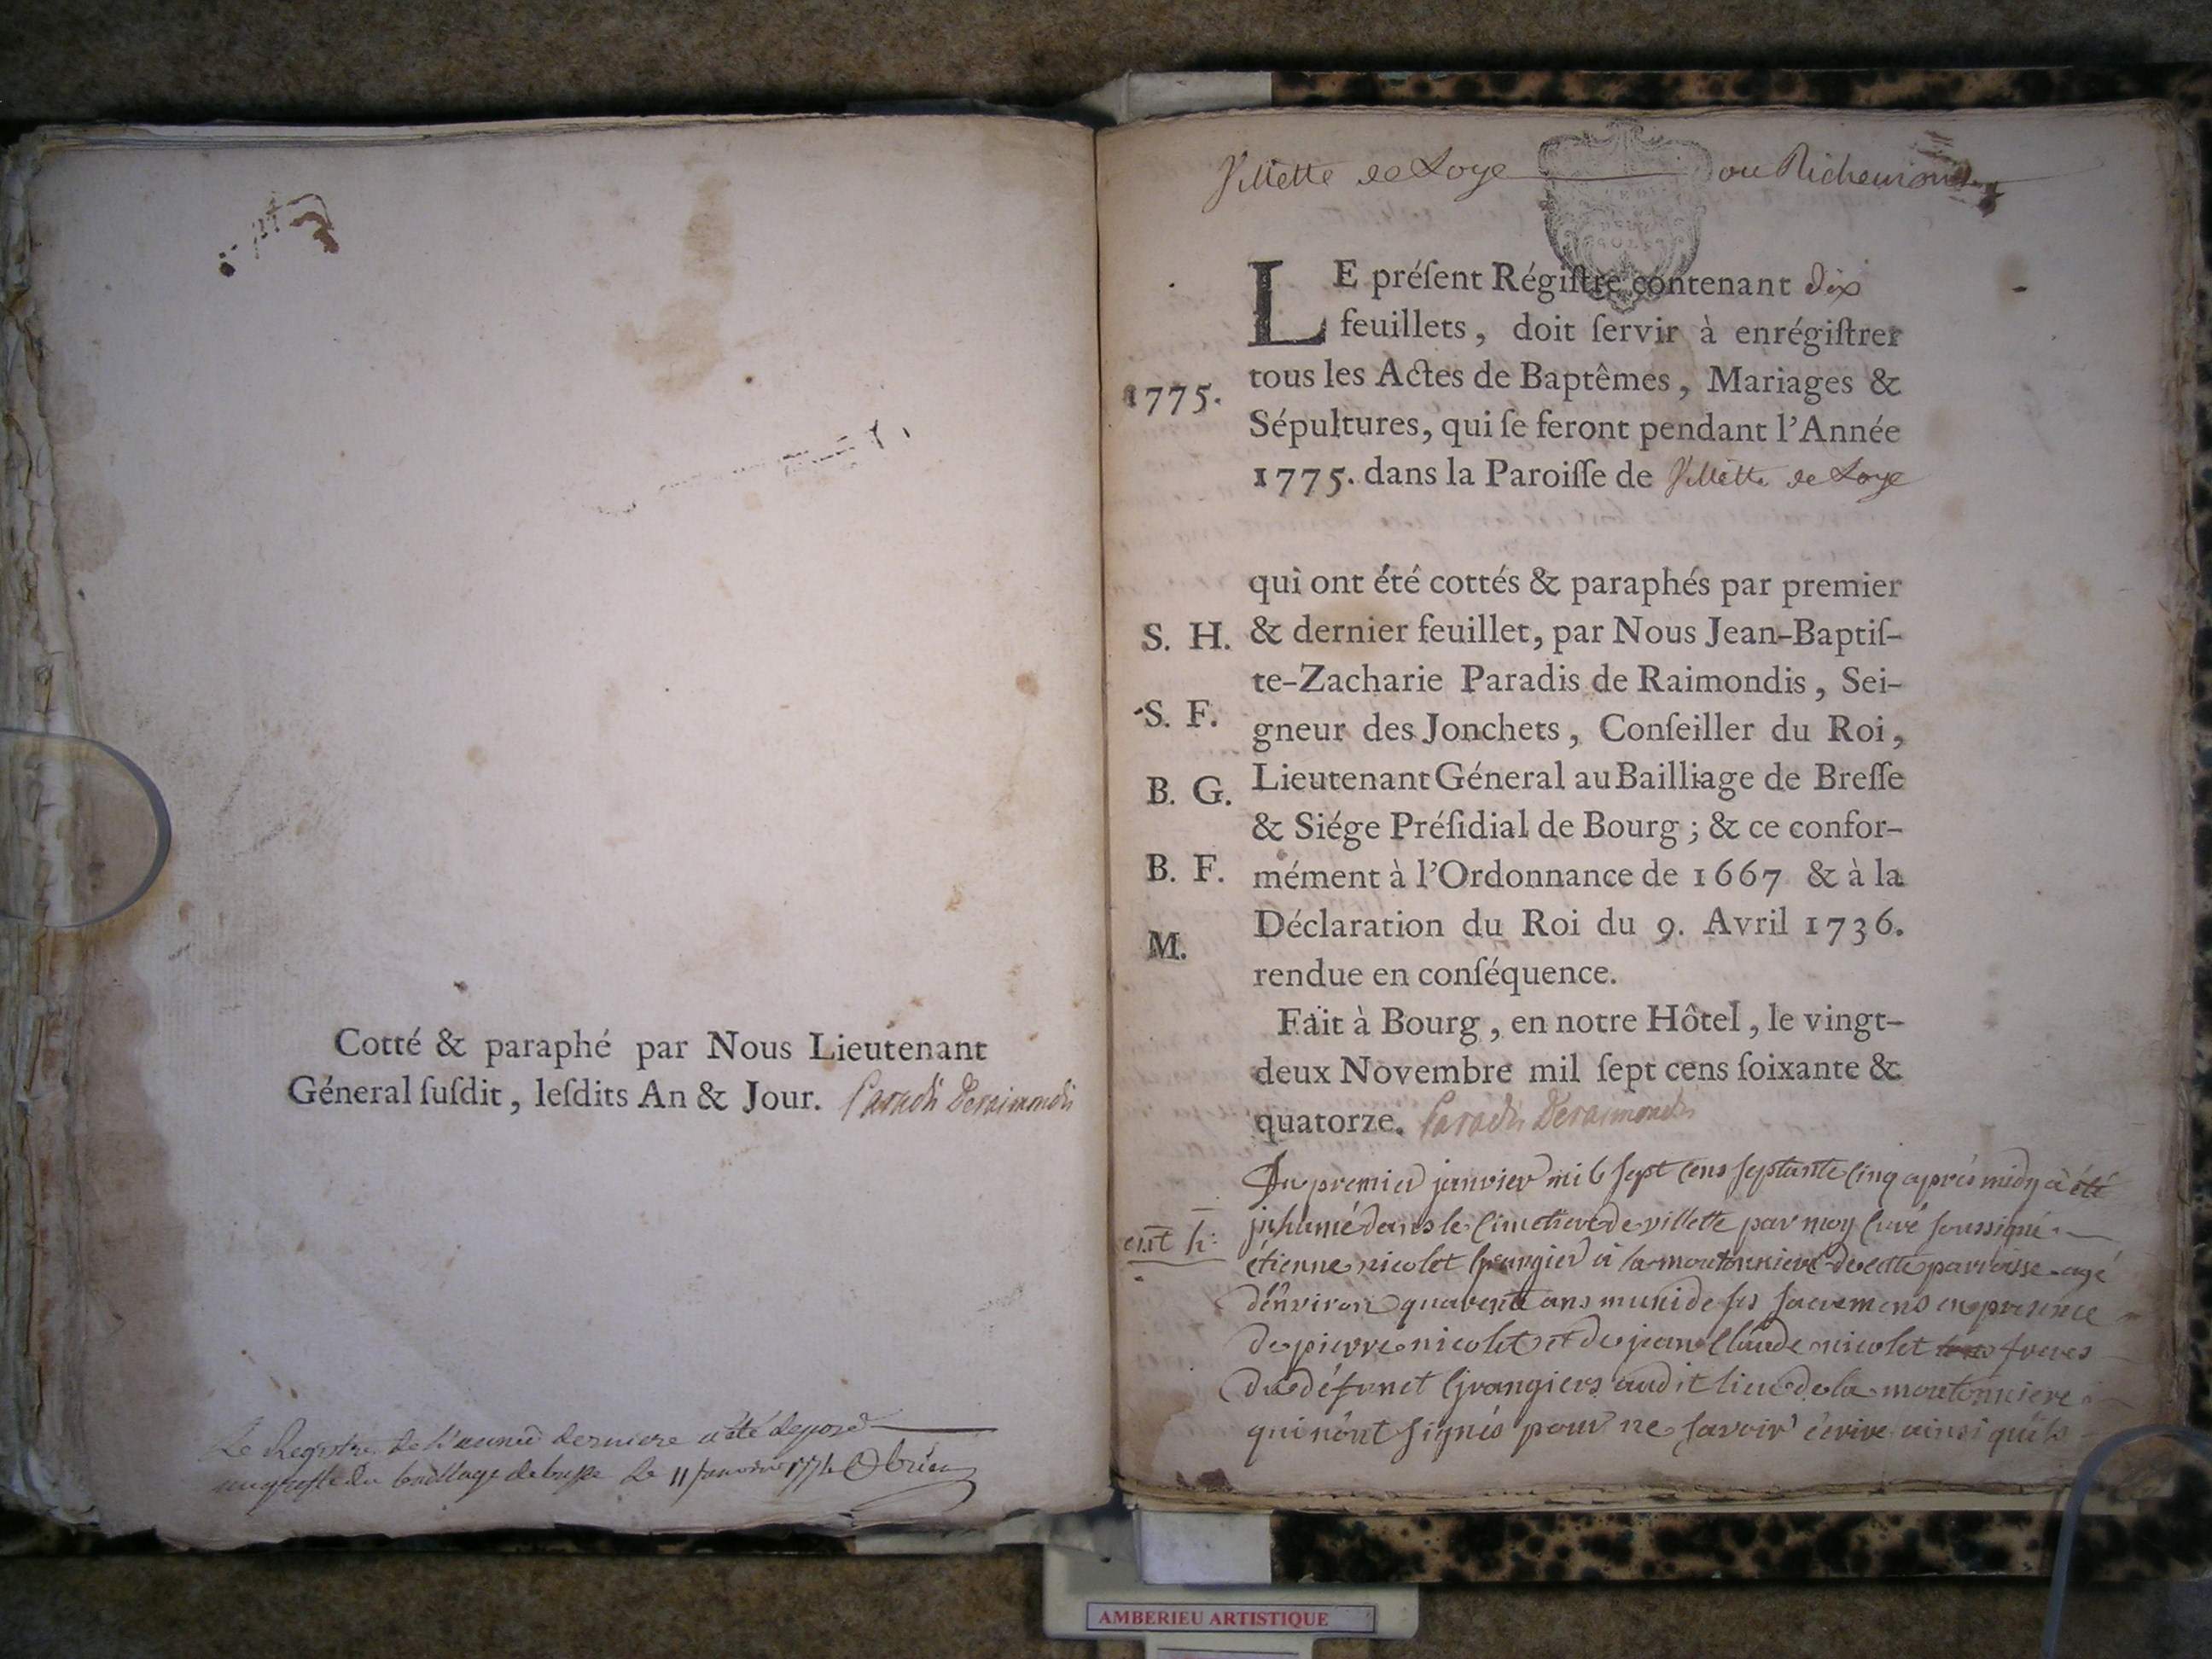 Cotté & paraphé par Nous Lieutenant
Géneral ſuſdit, leſdits An & Jour. Paradis Deraimondis
Le Registre de l'année derniere a été deposé
au greffe du bailliage de bresse le 11 Janvier 1774
Villette de Loye ou Richemont
LE préſent Régiſtre contenant dix
feuillets, doit ſervir à enrégiſtrer
1775. tous les Actes de Baptêmes, Mariages &
Sépultures, qui ſe feront pendant l'Année
1775. dans la Paroiſſe de Villette de Loye
qui ont été cottés & paraphés par premier
S. H. & dernier feuillet, par Nous Jean-Baptiſ-
te-Zacharie Paradis de Raimondis, Sei-
S. F. gneur des Jonchets, Conſeiller du Roi,
B. G. Lieutenant Géneral au Bailliage de Breſſe
& Siége Préſidial de Bourg; & ce confor-
B. F. mément à l'Ordonnance de 1667 & à la
M. Déclaration du Roi du 9. Avril 1736.
rendue en conſéquence.
Fait à Bourg, en notre Hôtel, le vingt-
deux Novembre mil ſept cens ſoixante &
quatorze. Paradis Deraimondis
Du premier janvier mil sept cens septante cinq après midy a été
inhumé dans le Cimetiere de villette par moy Curé soussigné
étienne nicolet Grangier à la moutonniere de cette parroisse agé
d'environ quarente ans muni de ses sacremens en presence
de pierre nicolet et de jean Claude nicolet freres
du défunct Grangiers audit lieu de la moutonniere
qui n'ont signés pour ne savoir écrire ainsi qu'ils
AMBERIEU ARTISTIQUE